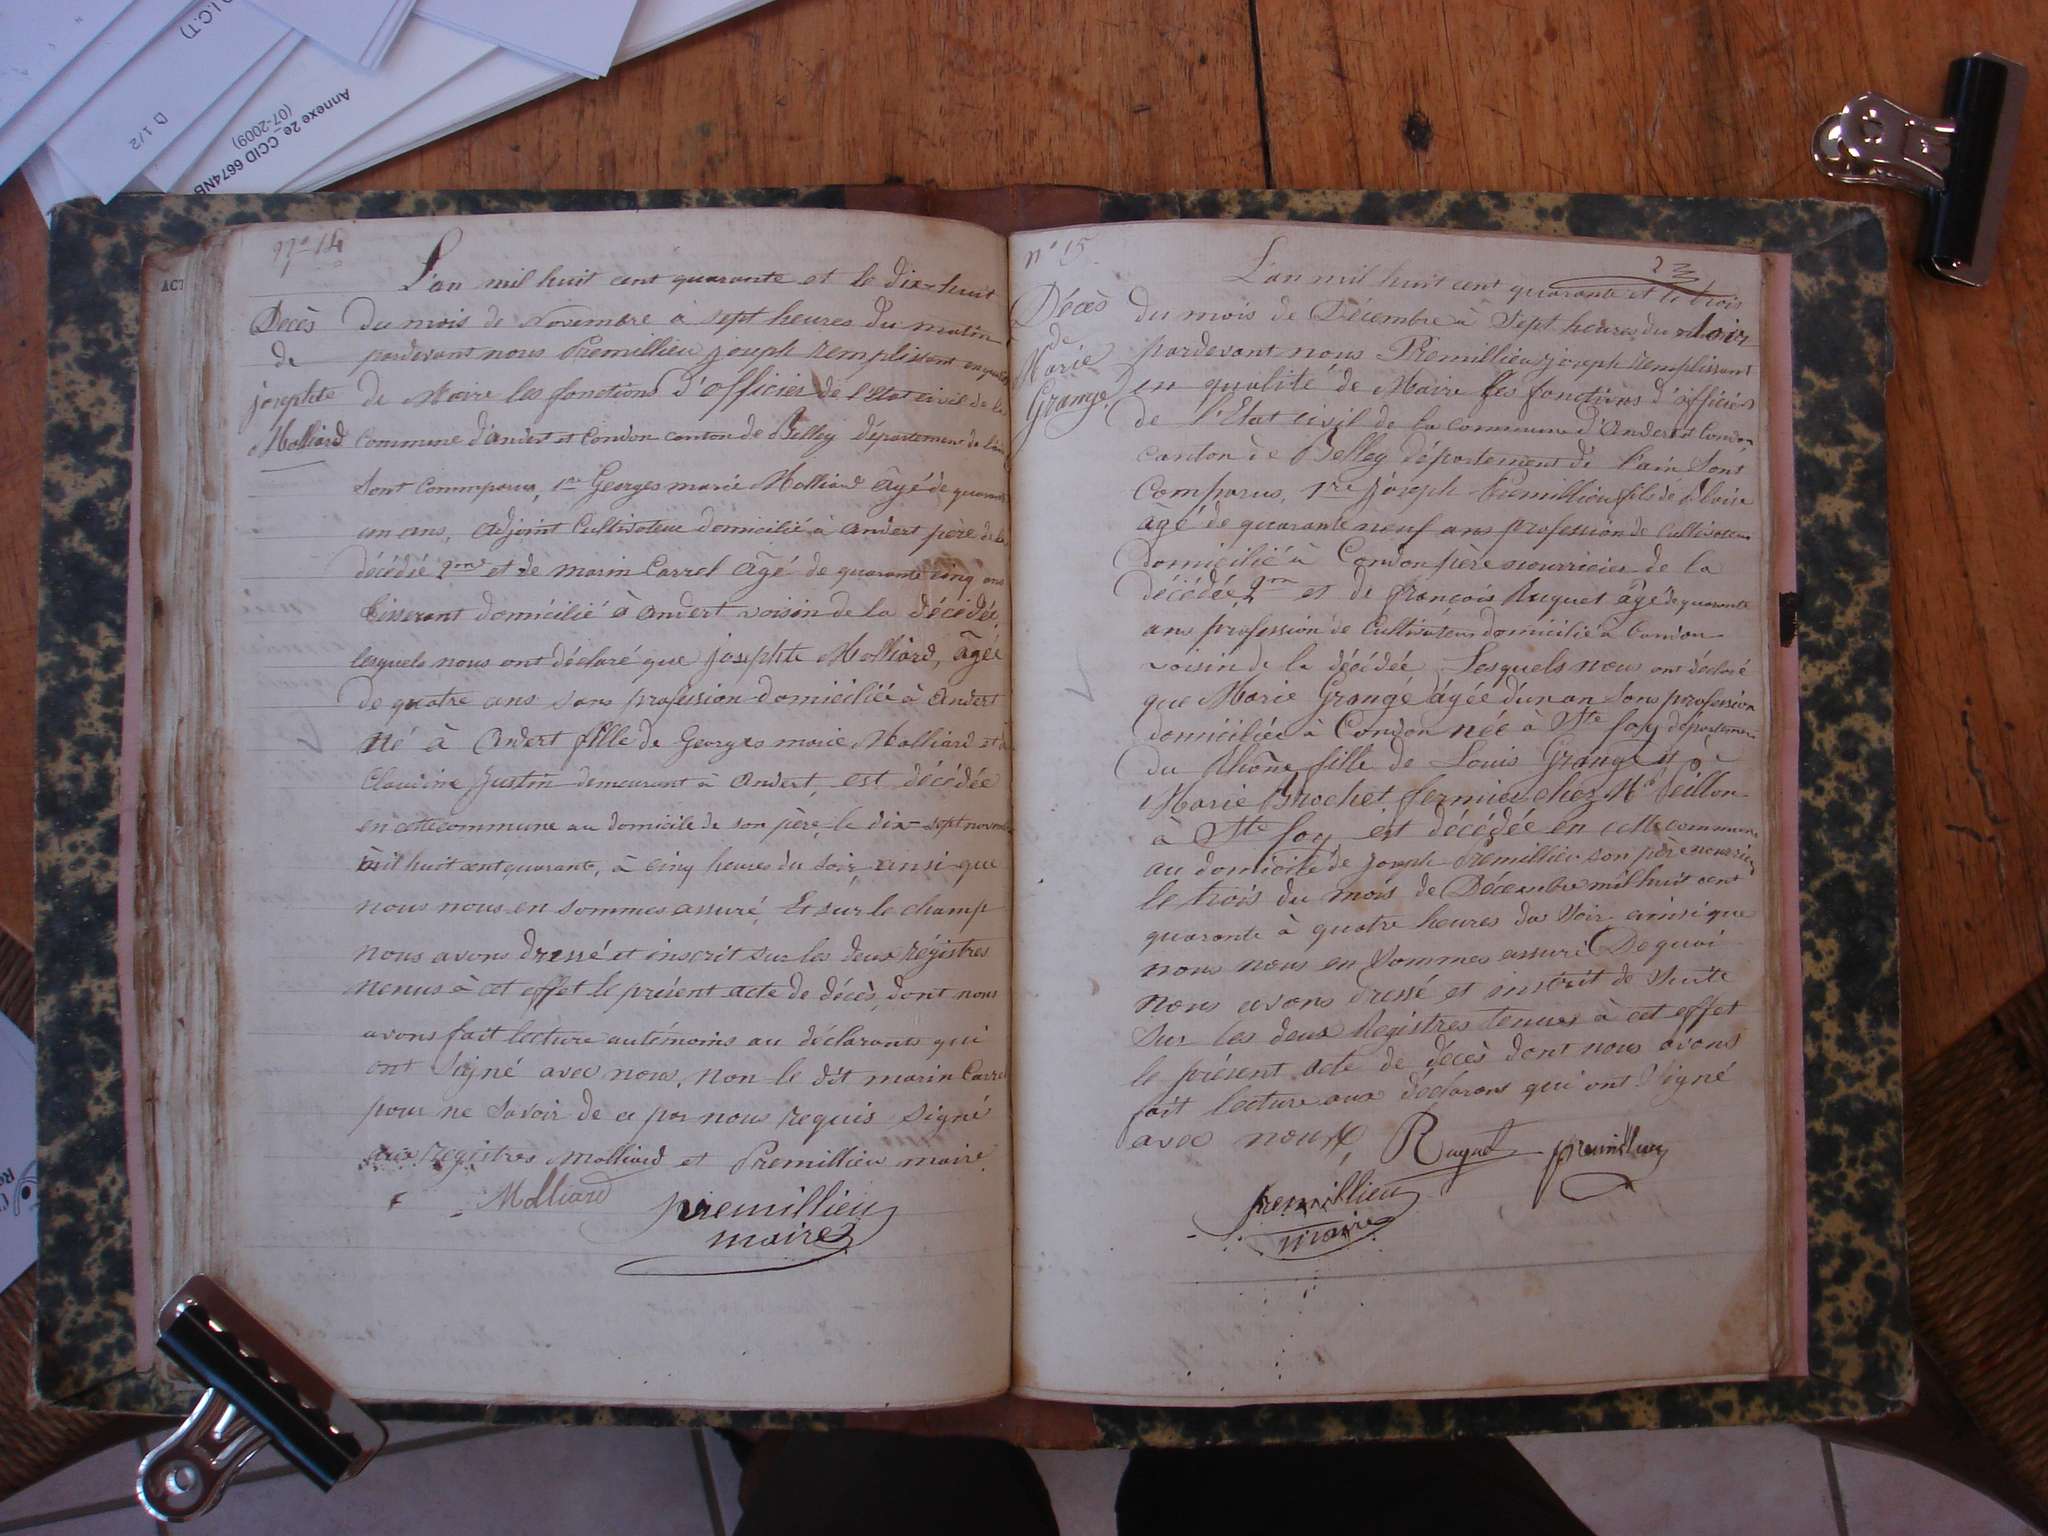 D.I.C.T)
D 1/2
Annexe 2e CCID 6674NB
(07-2009)
ACT
N° 14
L'an mil huit cent quarante et le dix-huit
Décès
de
josephte
Molliard
du mois de Novembre à sept heures du matin
pardevant nous Premillieu joseph remplissant en qualité
de Maire les fonctions d'officier de l'Etat civil de la
commune d'andert et Condon canton de Belley département de l'ain
sont Commparus, 1re Georges marie Molliard âgé de quarante
un ans, adjoint Cultivateur domicilié à andert père de la
décédée 2me et de marin Carrel âgé de quarante cinq ans
tisserant domicilié à andert voisin de la décédée,
lesquels nous ont déclaré que josephte Molliard, âgée
de quatre ans sans profession domiciliée à andert
né à andert fille de Georges marie Molliard et de
Claudine Justin demeurant à andert, est décédée
en cette commune au domicile de son père, le dix-sept novembre
mil huit cent quarante, à cinq heures du soir, ainsi que
nous nous en sommes assuré, Et sur le champ
nous avons dressé et inscrit sur les deux régistres
tenus à cet effet le présent acte de décès, dont nous
avons fait lecture autémoins au déclarants qui
ont signé avec nous, non le dit marin Carrel
pour ne savoir de ce par nous requis signé
aux registres Molliard et Premillieu maire.
Molliard premillieu
maire
n° 15
L'an mil huit cent quarante et le trois
Décès
de
Marie
Grange
du mois de Décembre à sept heures du soir
pardevant nous Premillieu joseph remplissant
en qualité de Maire les fonctions d'officier
de l'Etat civil de la commune d'Andert et Condon
canton de Belley département de l'ain sont
Comparus, 1re joseph Premillieu fils de
âgé de quarante neuf ans profession de cultivateur
domicilié à Condon père nourricier de la
décédée, 2me et de françois Ruguet âgé de quarante
ans profession de Cultivateur domicilié à Condon
voisin de la décédée, Lesquels nous ont déclaré
que Marie Grange âgée d'un an sans profession
domiciliée à Condon née à Ste foy département
du Rhône fille de Louis Grange et de
Marie Brochet fermier chez Mr
à Ste foy est décédée en cette commune
au domicile de joseph Premillieu son père nourricier
le trois du mois de Décembre mil huit cent
quarante à quatre heures du soir ainsi que
nous nous en sommes assuré De quoi
nous avons dressé et inscrit de suite
sur les deux Registres tenus à cet effet
le présent acte de décès dont nous avons
fait lecture aux déclarans qui ont signé
avec nous, Ruguet premillieu
premillieu
maire